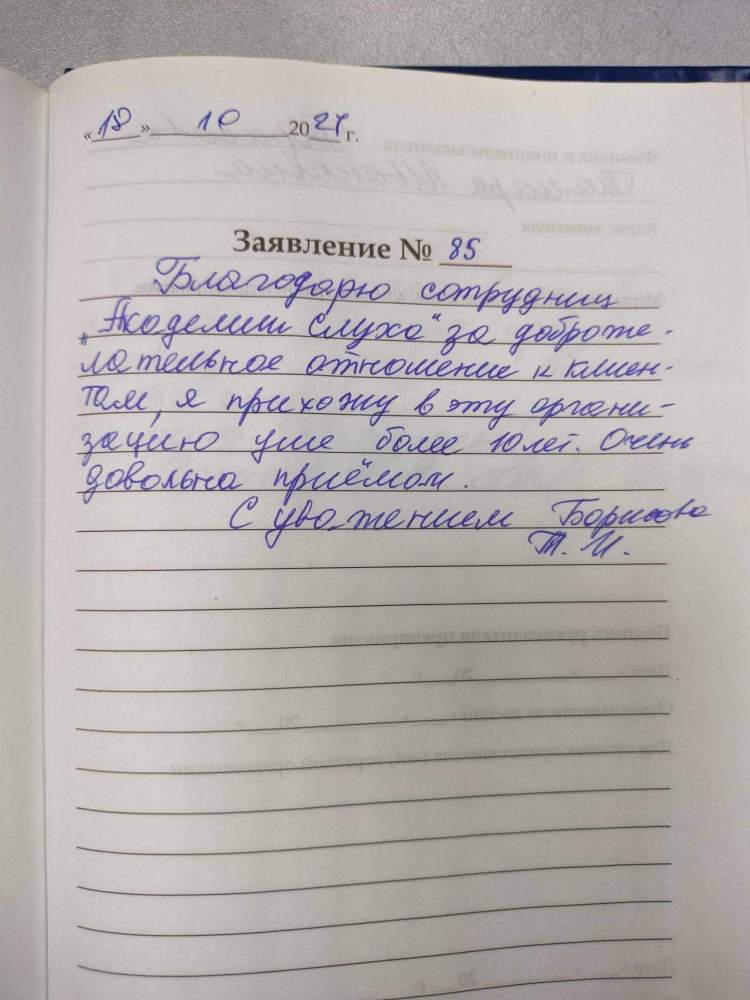 «18» 10 2024 г.
Заявление № 85
Благодарю сотрудниц
"Академии Слуха" за доброже-
лательное отношение к клиен-
там, я прихожу в эту органи-
зацию уже более 10 лет. Очень
довольна приёмом.
С уважением Борисова
Т. И.